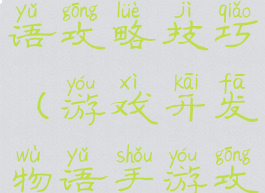 yǔ gōng lüè jì qiǎo
语攻略技巧
yóu xì kāi fā
（游戏开发
wù yǔ shǒu yóu gōng
物语手游攻